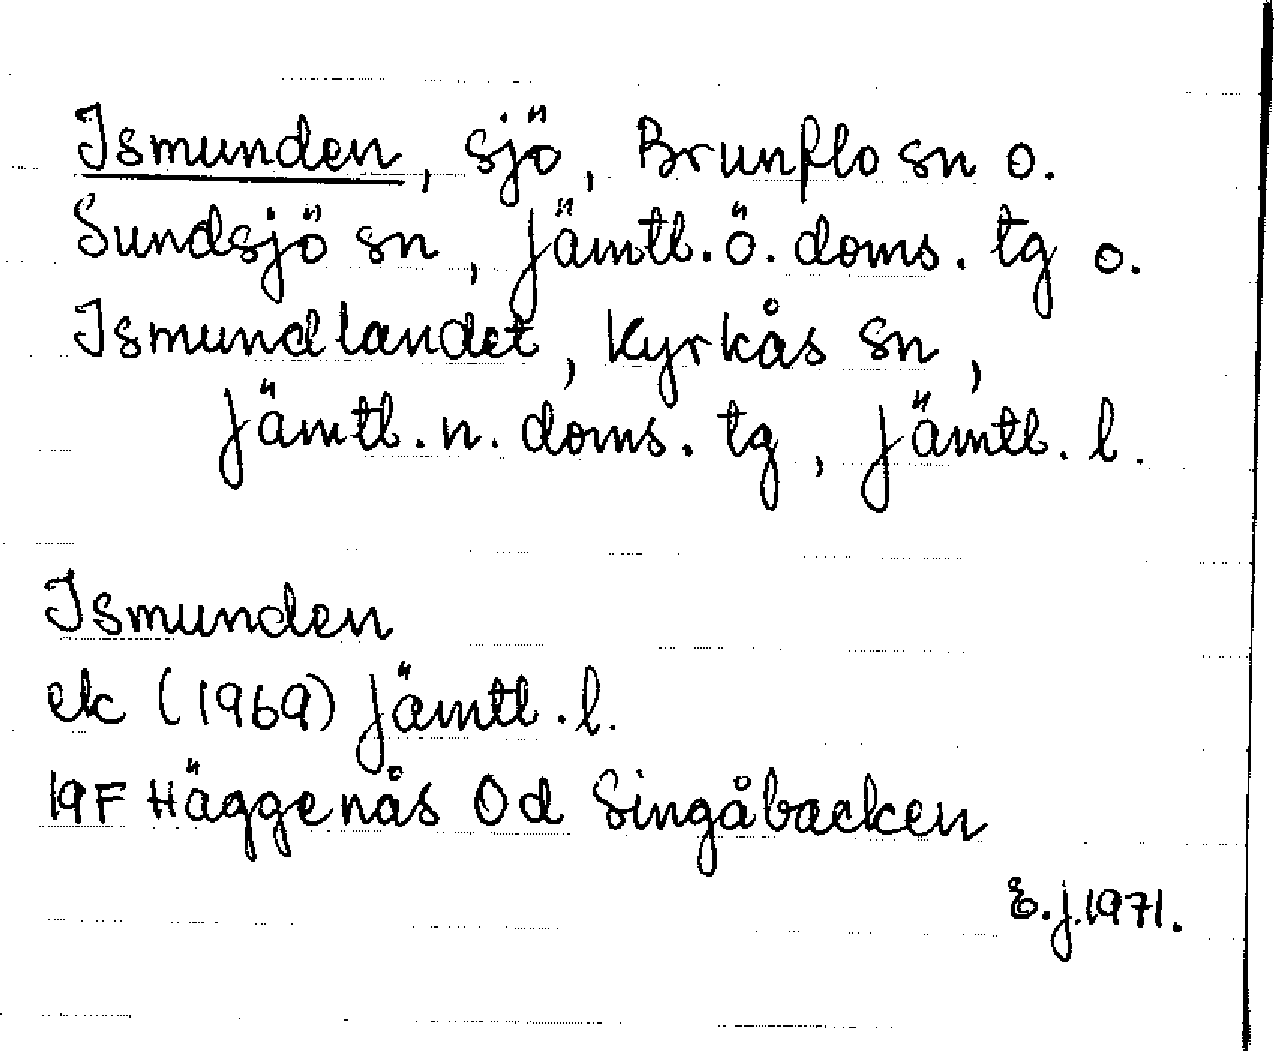 Ismunden, sjö, Brunflo sn o.
Sundsjö sn, Jämtl. ö. doms. tg o.
Ismundlandet, Kyrkås sn,
Jämtl. n. doms. tg, Jämtl. l.
Ismunden
ek (1969) Jämtl. l.
19F Häggenås 0d Singåbacken
E.J. 1971.